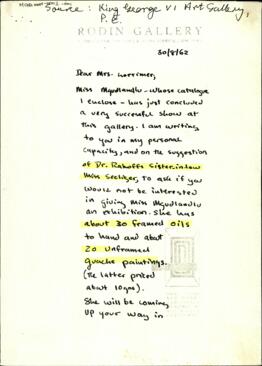 Source: King George VI Art Gallery,
P.E.
RODIN GALLERY
30/8/62
Dear Mrs. Lorrimer,
Miss Mgudlandlu - whose catalogue
I enclose - has just concluded
a very successful show at
this gallery. I am writing
to you in my personal
capacity, and on the suggestion
of Dr. Rakoffs Sister-in-law
Miss to ask if you
would not be interested
in giving Miss Mgudlandlu
an exhibition. She has
about 30 framed oils
to hand and about
20 unframed
guache paintings.
(The latter priced
about 10gns).
She will be coming
up your way in